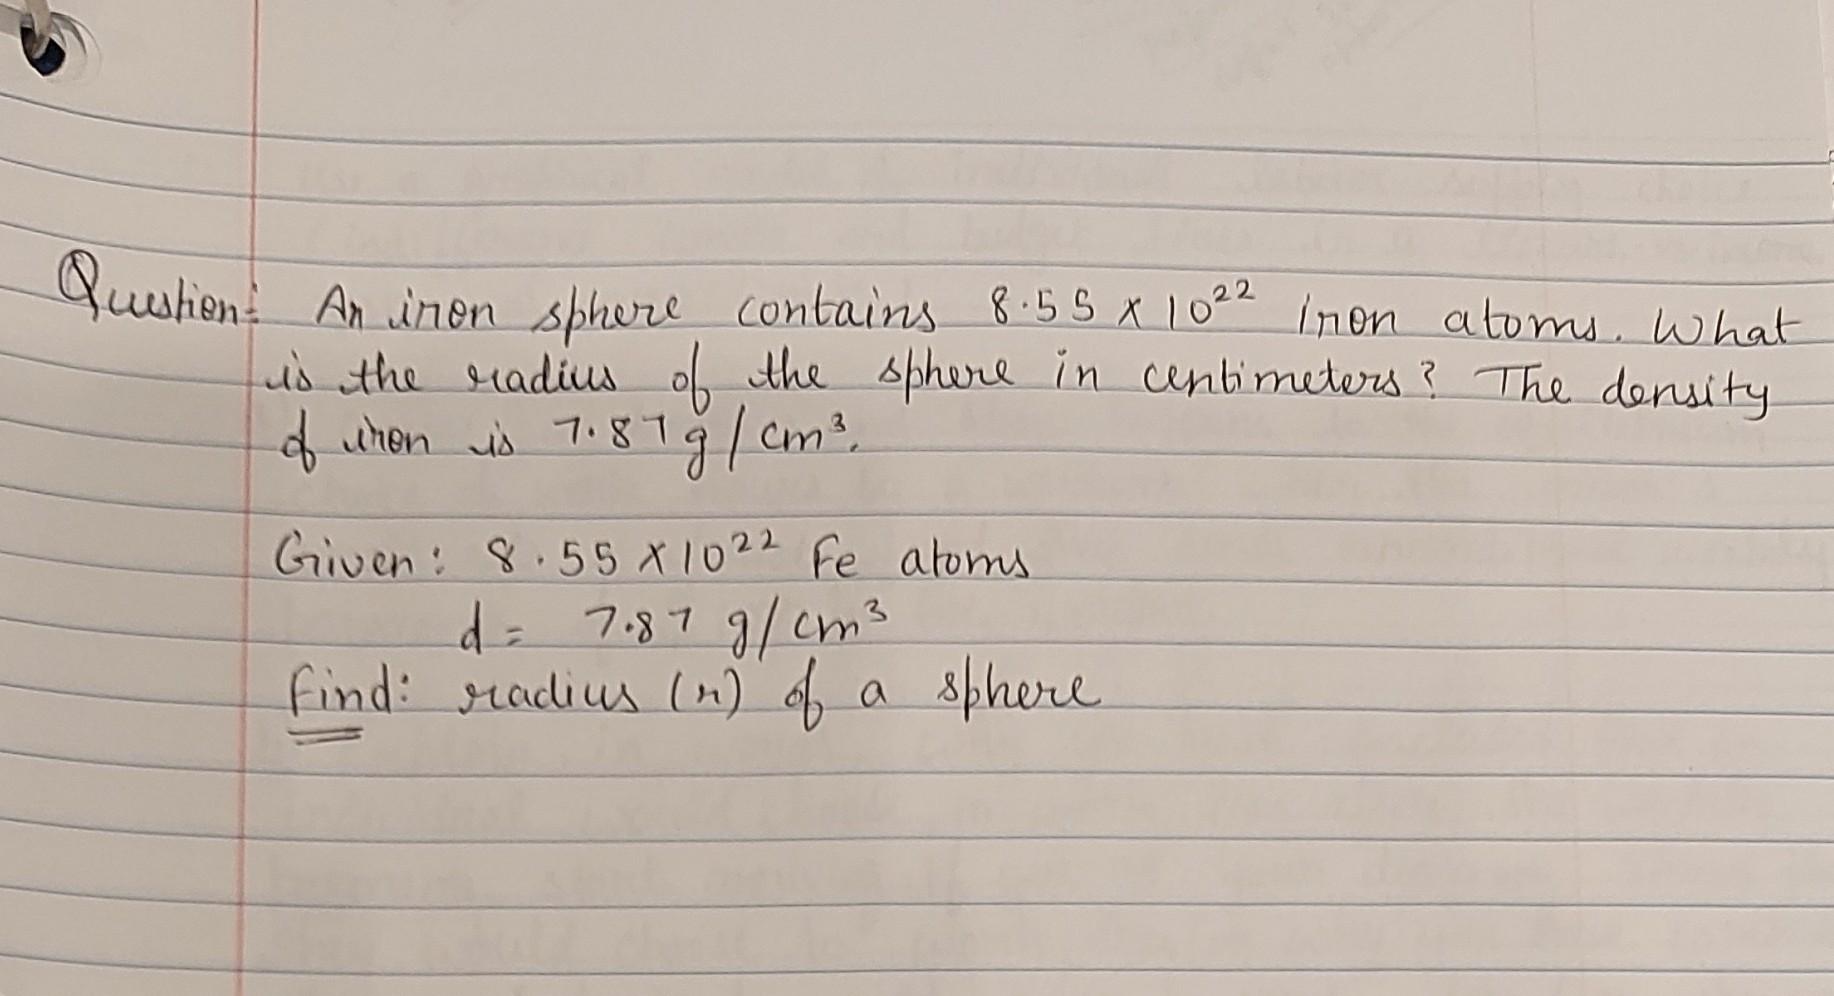 Question: An iron sphere contains 8.55 x 10²² iron atoms. What
is the radius of the sphere in centimeters? The density
of iron is 7.87 g/cm³.
Given: 8.55 x 10²² Fe atoms
d = 7.87 g/cm³
Find: radius (r) of a sphere